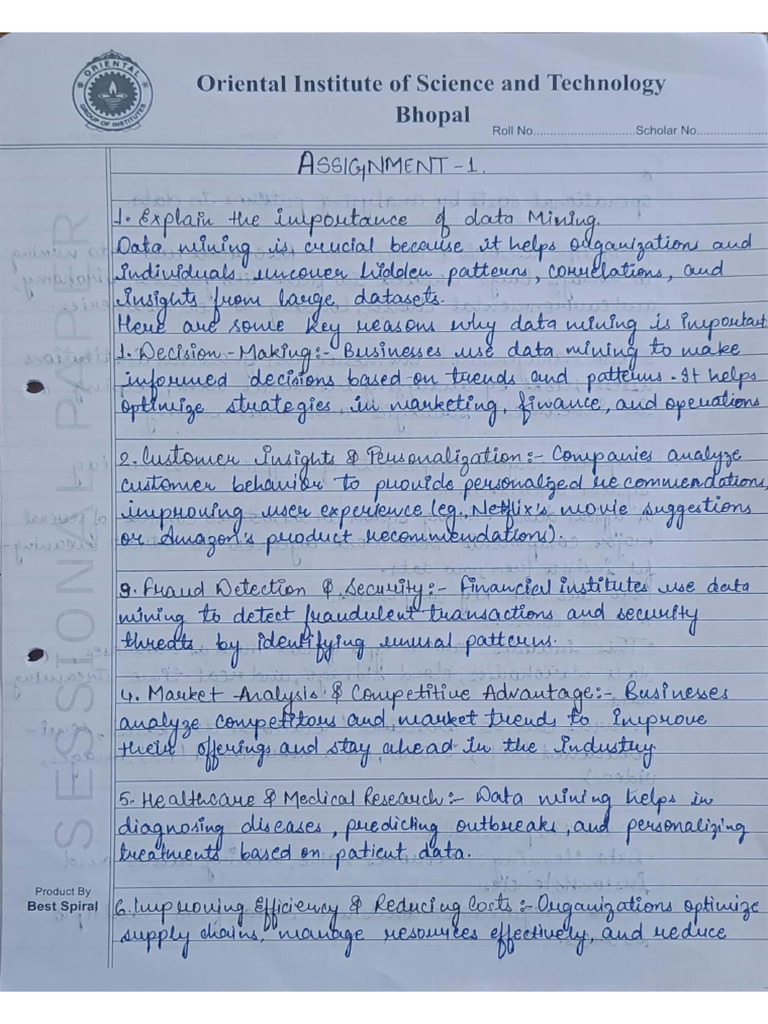 ORIENTAL
GROUP OF INSTITUTES
Oriental Institute of Science and Technology
Bhopal
Roll No..............................Scholar No..................
ASSIGNMENT-1.
1. Explain the importance of data Mining.
Data mining is crucial because it helps organizations and
individuals uncover hidden patterns, correlations, and
insights from large datasets.
Here are some key reasons why data mining is important
1. Decision-Making:- Businesses use data mining to make
informed decisions based on trends and patterns. It helps
optimize strategies in marketing, finance, and operations
2. Customer Insights & Personalization:- Companies analyze
customer behavior to provide personalized recommendations,
improving user experience (eg., Netflix's movie suggestions
or Amazon's product recommendations).
3. Fraud Detection & Security:- Financial institutes use data
mining to detect fraudulent transactions and security
threats by identifying unusual patterns.
4. Market Analysis & Competitive Advantage:- Businesses
analyze competitors and market trends to improve
their offerings and stay ahead in the industry
5. Healthcare & Medical Research:- Data mining helps in
diagnosing diseases, predicting outbreaks, and personalizing
treatments based on patient data.
6. Improving Efficiency & Reducing Costs:- Organizations optimize
supply chains, manage resources effectively, and reduce
SESSIONAL PAPER
Product By
Best Spiral